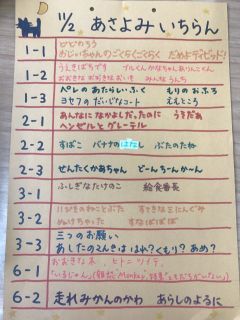 11/2 あさよみいちらん
1-1
とどのろう
おじいちゃんのごくらくごくらく だめよデイビッド!
1-2
うえきばちです プルくんかなちゃんありんこくん
おおきなおおきなおいも みんなうんち
1-3
ペレのあたらしいふく もりのおふろ
ヨセフのだいじなコート ええところ
2-1
あんなになかよしだったのに うまだぁ
ヘンゼルとグレーテル
2-2
すばこ バナナのはなし ぶたのたね
2-3
せんたくかあちゃん どーんちーんかーん
3-1
ふしぎなたけのこ 給食番長
3-2
こびとづかん すてきな三にんぐみ
めいちゃった すなばばば
3-3
三つのお願い
あしたのてんきははれ?くもり?あめ?
6-1
おおきな木 ヒトニツイテ
6-2
走れみかんのかわ あらしのよるに